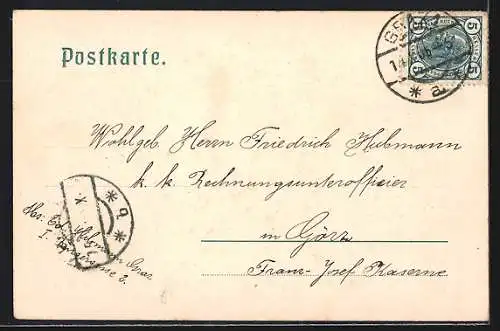 Postkarte.
5 5
5 5
Wohlgeb. Herrn Friedrich Hubmann
k. k. Rechnungsunteroffizier
in Görz
Franz-Josef Kaserne
* b *
* a *